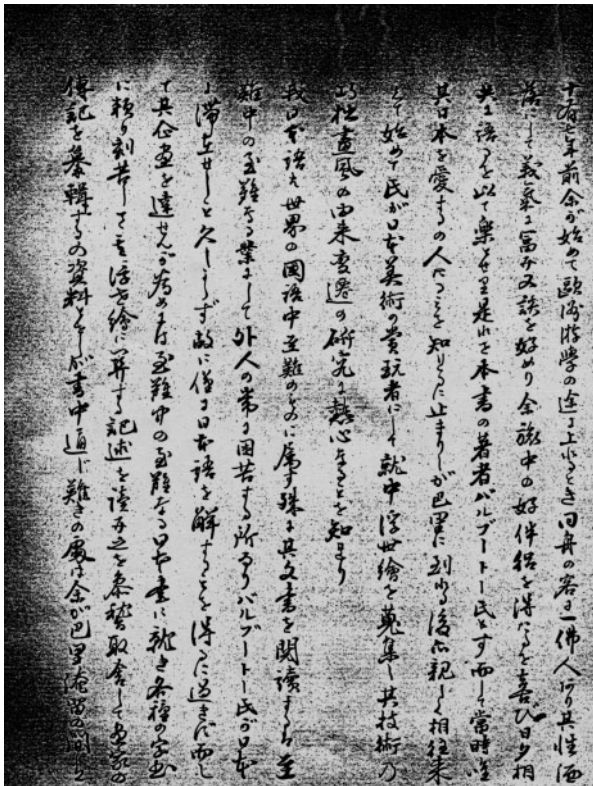 十有七年前余が始めて歐洲游學の途に上れるとき同舟の客に一佛人あり其性洒
落にして義氣に富み又談を好めり余旅中の好伴侶を得たるを喜び日夕相
與に語るを以て樂とせり是れを本書の著者バルブートー氏とす而して當時唯
其日本を愛するの人なることを知りたるに止まりしが巴里に到れる後亦親しく相往来
して始めて氏が日本美術の賞玩者にして就中浮世繪を蒐集し其技術の
巧拙畫風の由来変遷の研究に熱心なることを知れり
我日本語は世界の國語中至難のものに属す殊に其文書を閲讀するは至
難中の至難なる業にして外人の常に困苦する所なりバルブートー氏が日本
に滞在せしこと久しからず故に僅に日本語を解することを得るに過ぎず而し
て其企畫を達せんが為めには至難中の至難なる日本書に就き各種の字書
に頼り刻苦して浮世繪に関する記述を讀み之を参稽取舍して畫家の
傳記を纂輯するの資料とせしが書中通じ難きの處は余が巴里淹留の間